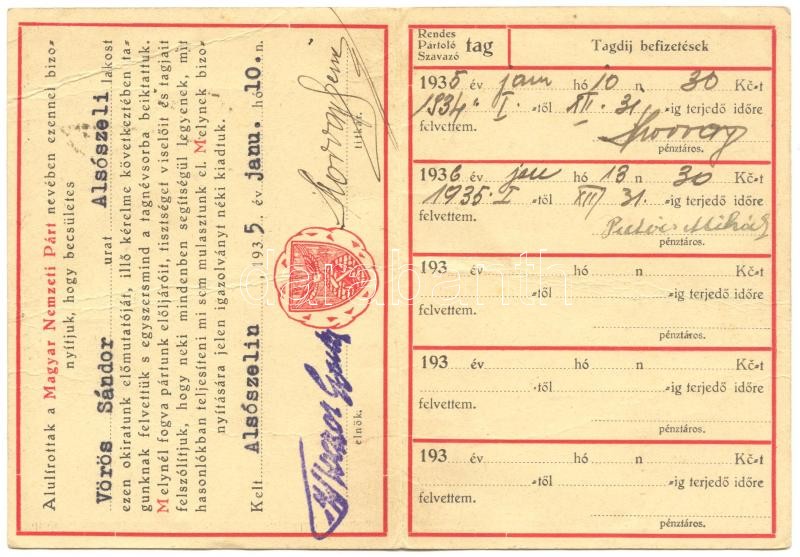 Alulírottak a Magyar Nemzeti Párt nevében ezennel bizo-
nyítjuk, hogy becsületes
Vörös Sándor urat Alsószeli lakost
ezen okiratunk előmutatóját, illő kérelme következtében ta-
gunknak felvettük s egyszersmind a tagnévsorba beiktattuk.
Melynél fogva pártunk előljáróit, tisztséget viselőit és tagjait
felszólítjuk, hogy neki mindenben segítségül legyenek, mit
hasonlókban teljesíteni mi sem mulasztunk el. Melynek bizo-
nyítására jelen igazolványt néki kiadtuk.
Kelt Alsószelin, 1935 év janu. hó 10. n.
elnök.
titkár.
Rendes
Pártoló
Szavazó
tag
Tagdij befizetések
1935 év jan hó 10 n 30 Kč-t
1934 I. -től XII. 31. -ig terjedő időre
felvettem.
pénztáros.
1936 év jan hó 13 n 30 Kč-t
1935. I -től XII 31. -ig terjedő időre
felvettem. Mihály
pénztáros.
193 év hó n Kč-t
-től -ig terjedő időre
felvettem.
pénztáros.
193 év hó n Kč-t
-től -ig terjedő időre
felvettem.
pénztáros.
193 év hó n Kč-t
-től -ig terjedő időre
felvettem.
pénztáros.
darabanth